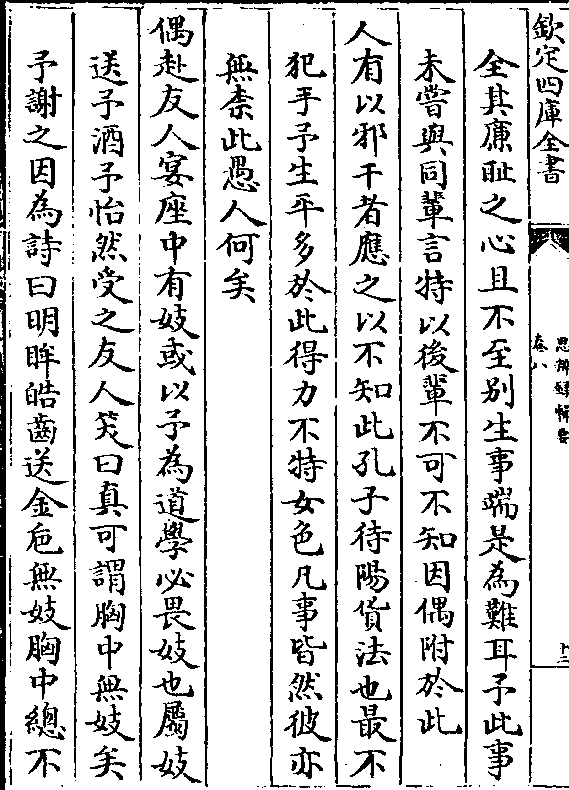 欽定四庫全書
思辨録輯要
卷八
十三
全其廉耻之心且不至别生事端是為難耳予此事
未嘗與同輩言特以後輩不可不知因偶附於此
人有以邪干者應之以不知此孔子待陽貨法也最不
犯手予生平多於此得力不特女色凡事皆然彼亦
無柰此愚人何矣
偶赴友人宴座中有妓或以予為道學必畏妓也屬妓
送予酒予怡然受之友人笑曰真可謂胸中無妓矣
予謝之因為詩曰明眸皓齒送金巵無妓胸中總不